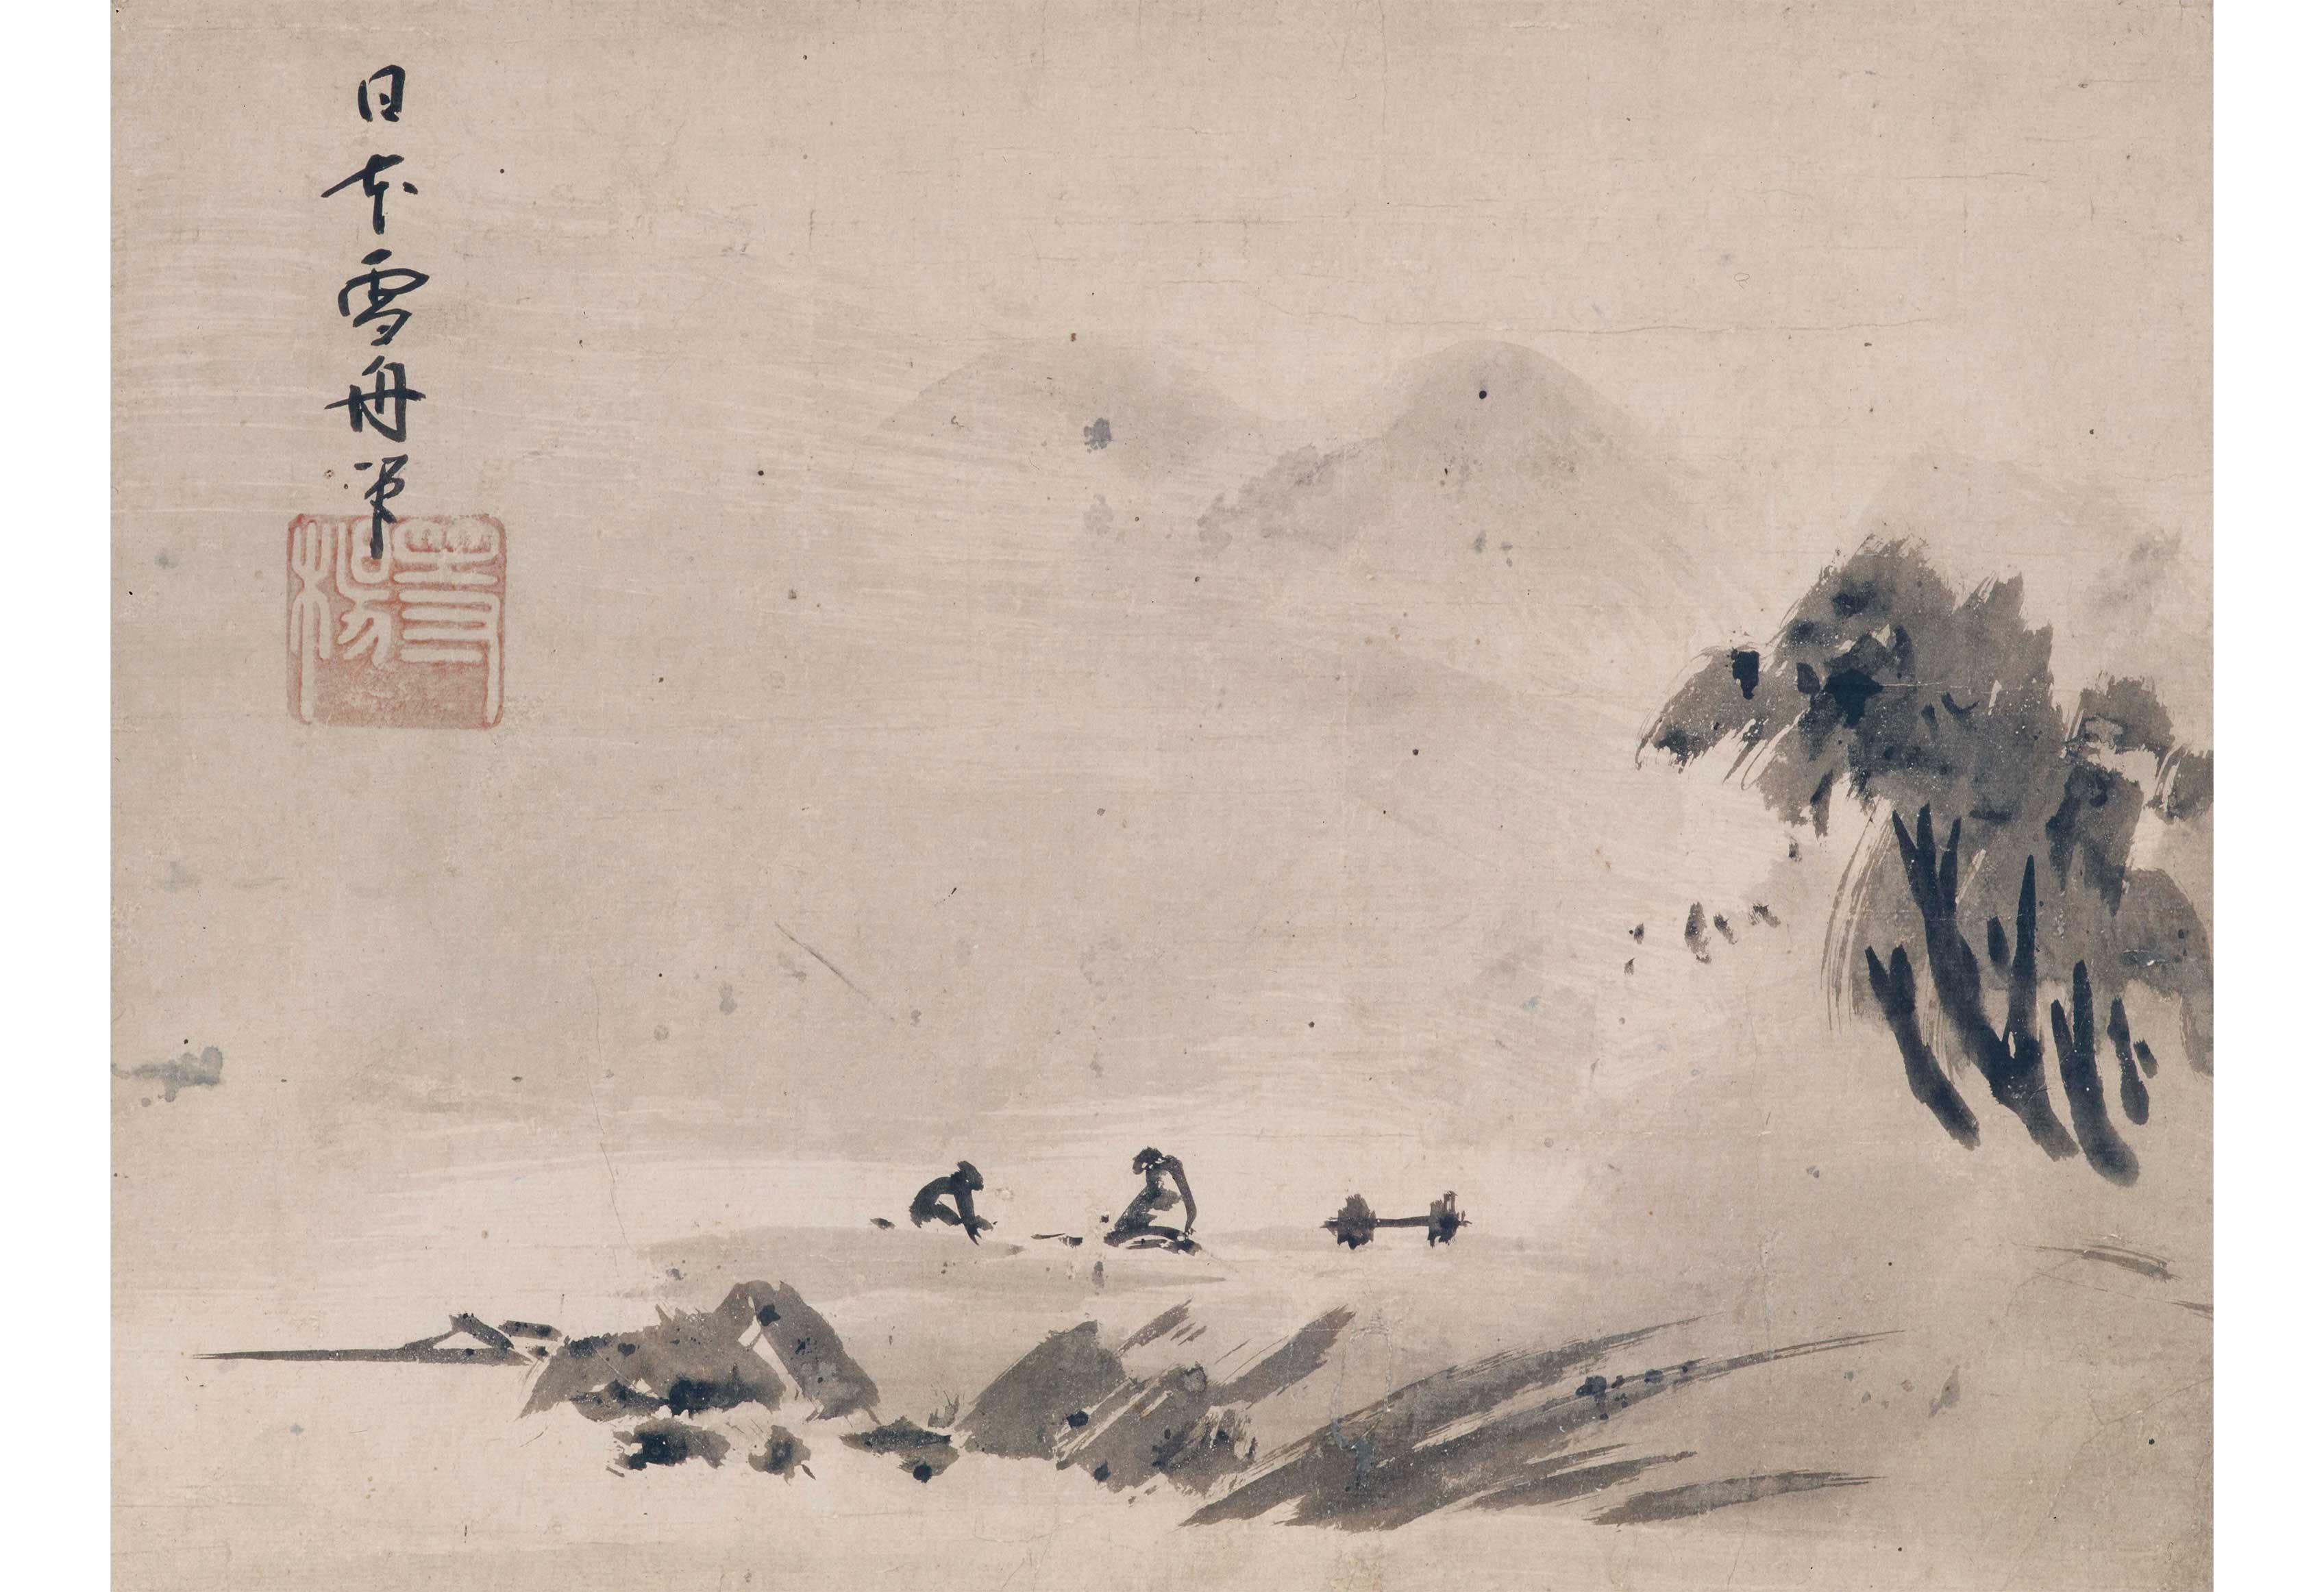 日本雪舟筆
雪楊